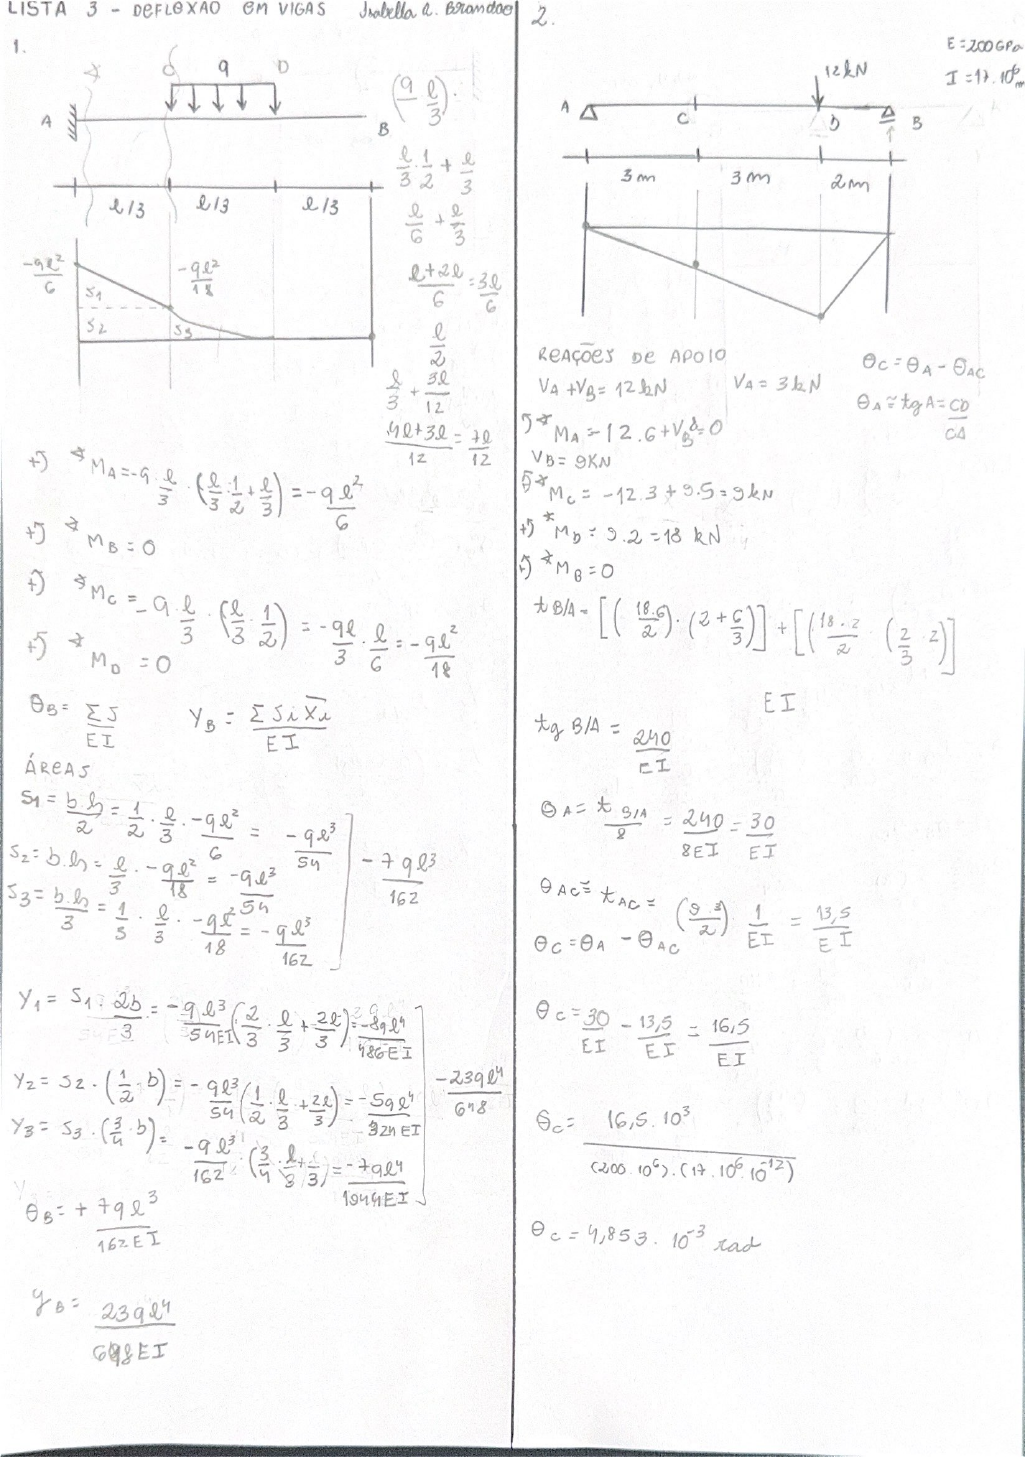 LISTA 3 - DEFLEXÃO EM VIGAS Isabella R. Brandao
1.
C q D
A B
l/3 l/3 l/3
(q l/3)
l/3 · 1/2 + l/3
l/6 + l/3
(l+2l)/6 = 3l/6
l/2
l/3 + 3l/12
(4l+3l)/12 = 7l/12
-ql²/6 -ql²/18
S1
S2 S3
+) * MA = -q · l/3 · (l/3 · 1/2 + l/3) = -ql²/6
+) * MB = 0
+) * MC = -q · l/3 · (l/3 · 1/2) = -ql/3 · l/6 = -ql²/18
+) * MD = 0
θB = ΣS/EI YB = ΣSi X̄i/EI
ÁREAS
S1 = b.h/2 = 1/2 · l/3 · -ql²/6 = -ql³/54
S2 = b.h = l/3 · -ql²/18 = -ql³/54
S3 = b.h/3 = 1/3 · l/3 · -ql²/18 = -ql³/162
-7ql³/162
Y1 = S1 · 2b/3 = -ql³/54EI (2/3 · l/3 + 2l/3) = -8ql⁴/486EI
Y2 = S2 · (1/2 · b) = -ql³/54 (1/2 · l/3 + 2l/3) = -5ql⁴/324EI
Y3 = S3 · (3/4 · b) = -ql³/162 · (3/4 · l/3 + l/3) = -7ql⁴/1944EI
-23ql⁴/648
θB = + 7ql³/162EI
yB = 23ql⁴/648EI
2.
E = 200GPa
I = 17.10⁶m
12kN
A C D B
3m 3m 2m
REAÇÕES DE APOIO
VA + VB = 12kN VA = 3kN
* MA = -12.6 + VB8 = 0
VB = 9KN
* MC = -12.3 + 9.5 = 9kN
+) * MD = 9.2 = 18 kN
+) * MB = 0
θC = θA - θAC
θA ≅ tgA = CD/CA
t B/A = [(18.6/2) · (2 + 6/3)] + [(18.2/2 · (2/3 · 2)]
EI
tg B/A = 240/EI
θA = t B/A/8 = 240/8EI = 30/EI
θAC ≅ tAC = (9.3/2) · 1/EI = 13,5/EI
θC = θA - θAC
θC = 30/EI - 13,5/EI = 16,5/EI
θC = 16,5.10³/(200.10⁶).(17.10⁶.10⁻¹²)
θC = 4,853.10⁻³ rad